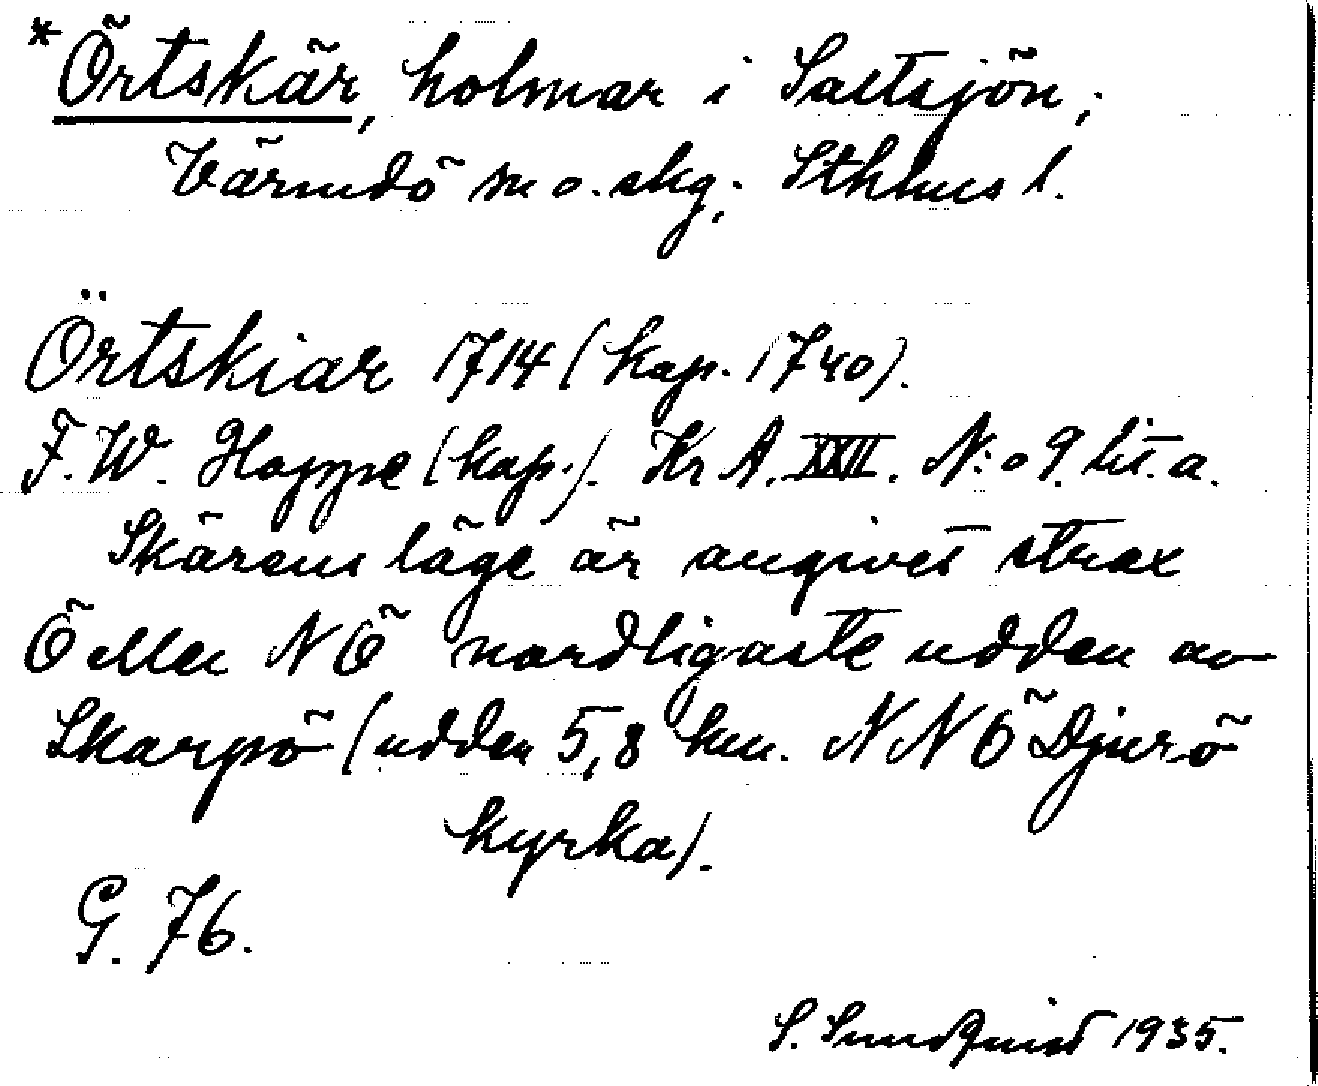 *Örtskär, holmar i Saltsjön,
Värmdö m o. skg, Sthlms l.
Örtskiar 1714 (kap. 1740).
F. W. Hoppe (kap.). Kr A. XXII. N:o 9. lit. a.
Skärens läge är angivet strax
Ö eller NÖ nordligaste udden av
Skarpö (udden 5,8 km. NNÖ Djurö
kyrka).
G. 76.
S. Sundquist 1935.